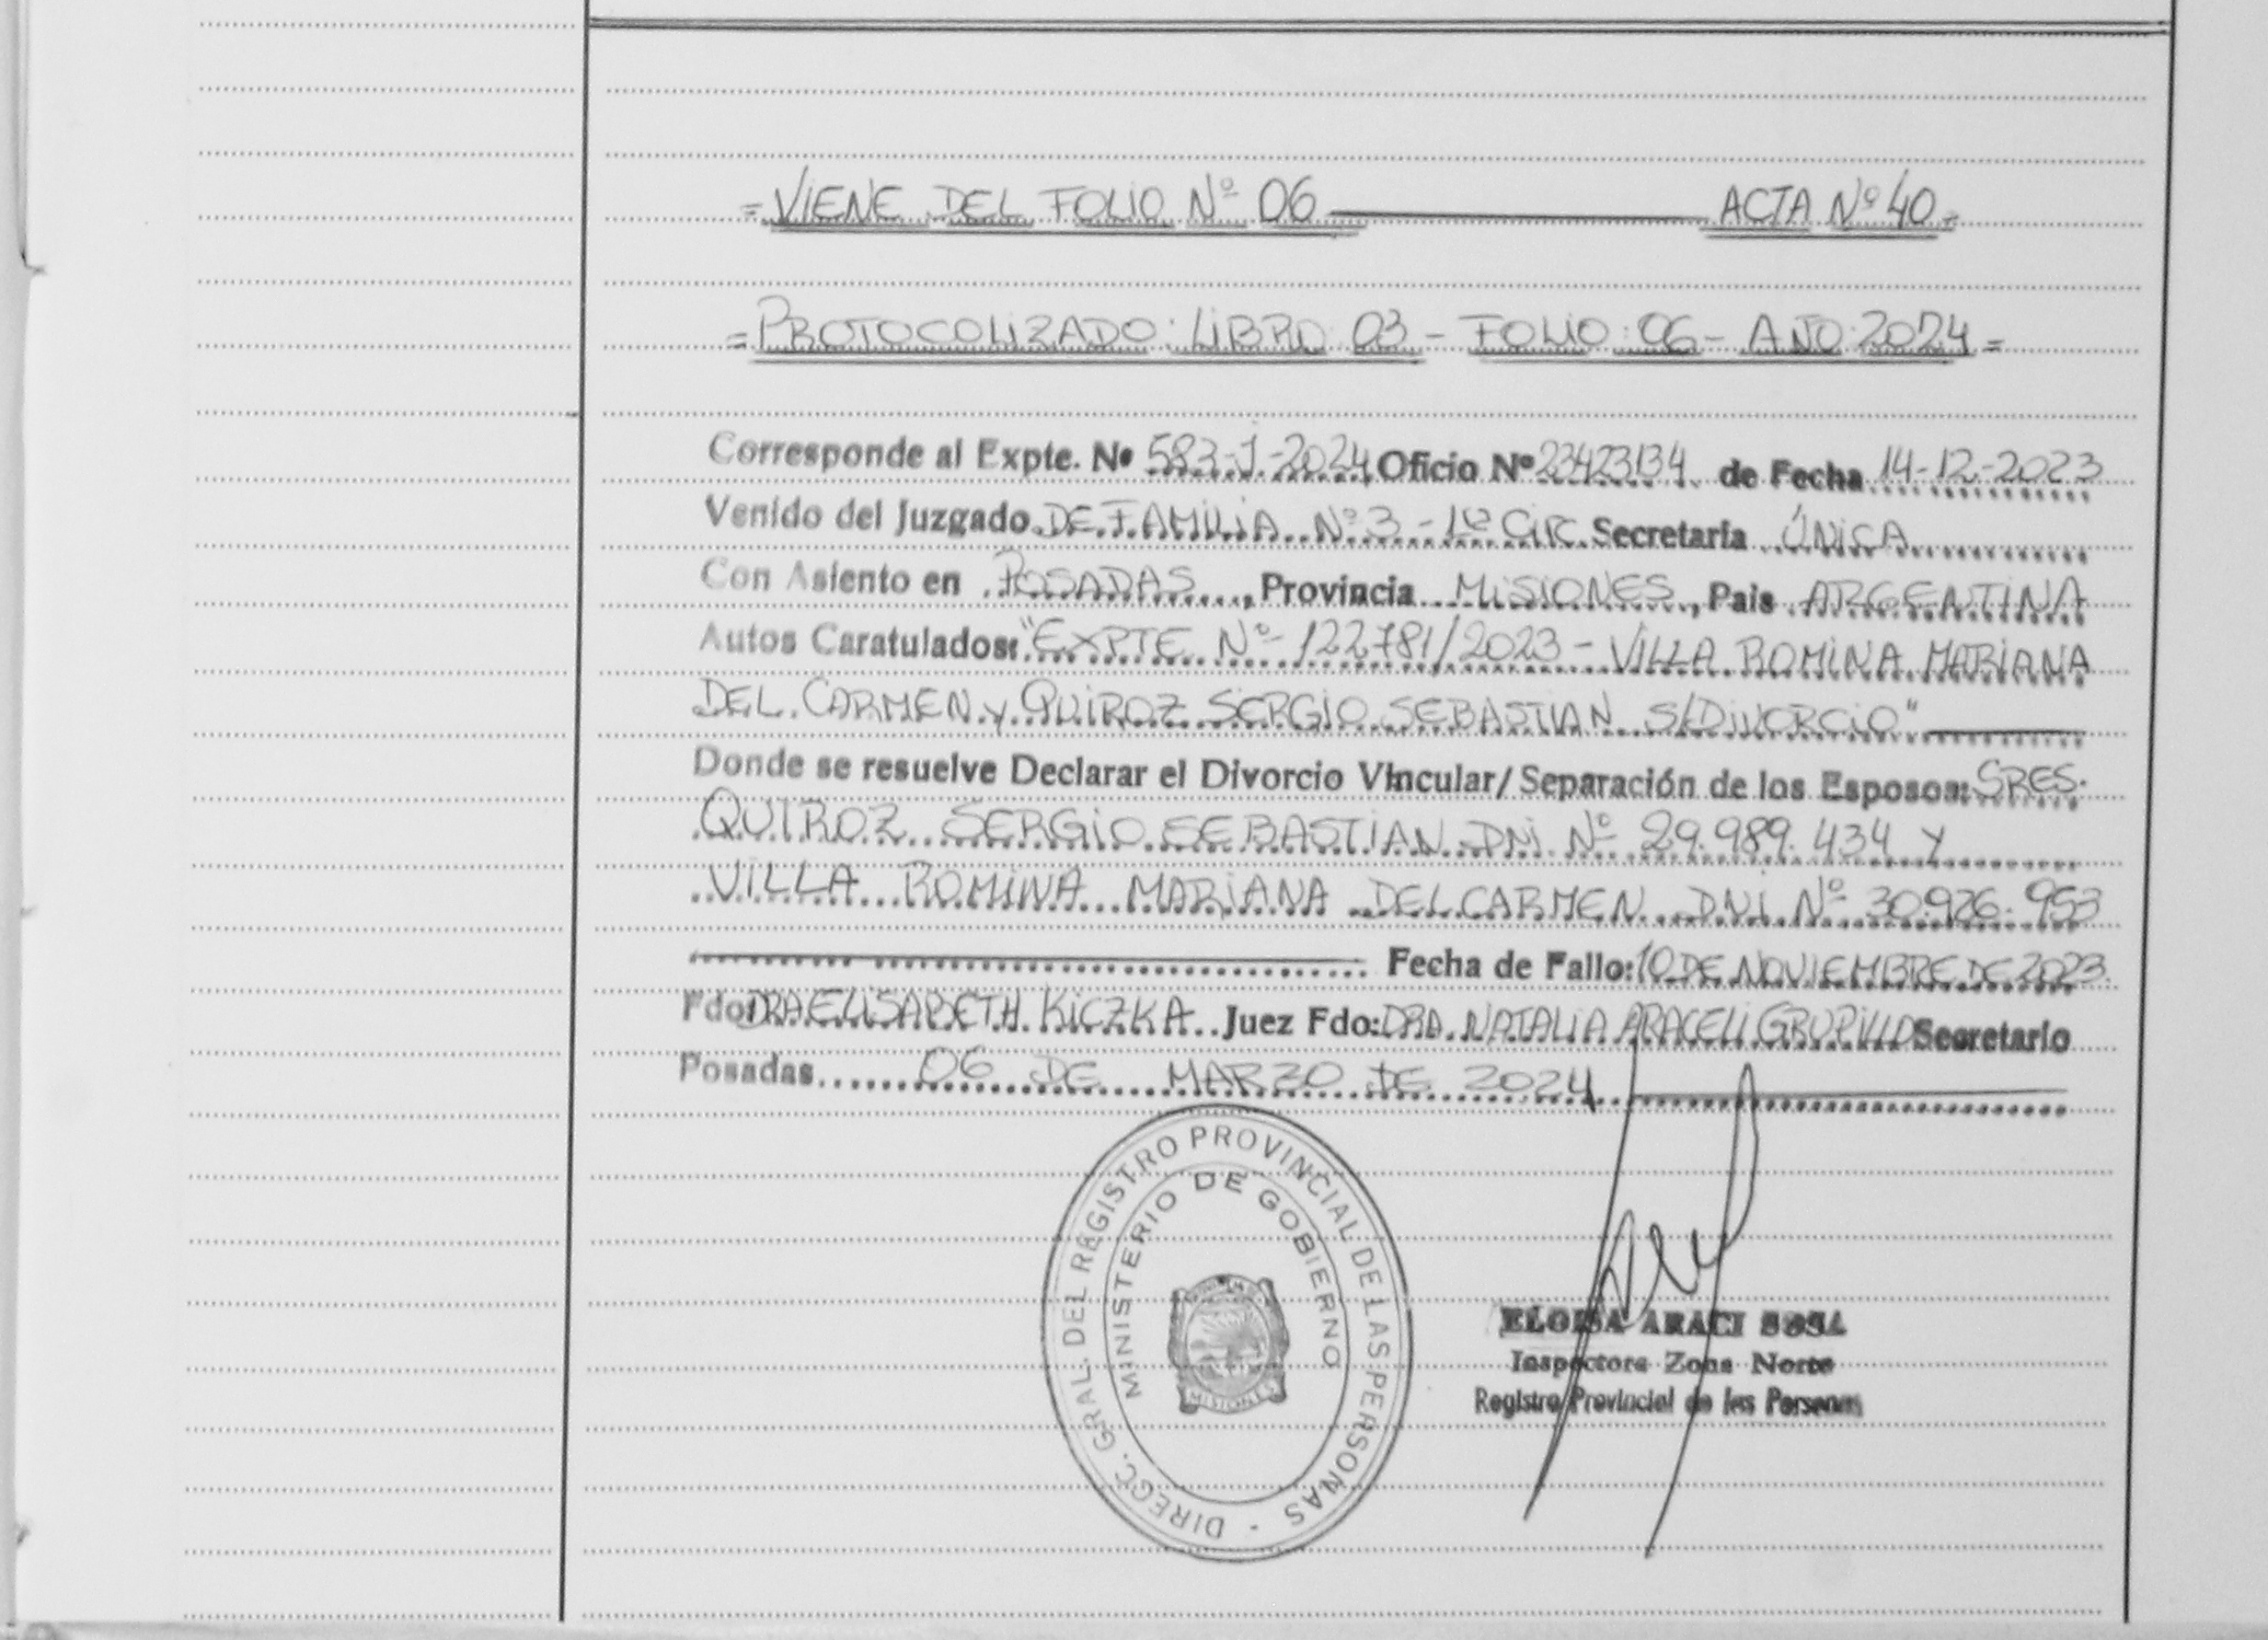 = VIENE DEL FOLIO Nº 06 ——— ACTA Nº 40 =
= PROTOCOLIZADO: LIBRO: 03 - FOLIO: 06 - AÑO: 2024 =
Corresponde al Expte. Nº 583-J-2024 Oficio Nº 23423134 de Fecha 14-12-2023
Venido del Juzgado DE FAMILIA Nº 3 - 1º CIRC. Secretaría ÚNICA
Con Asiento en POSADAS, Provincia MISIONES, Pais ARGENTINA
Autos Caratulados: "EXPTE Nº 122781/2023 - VILLA ROMINA MARIANA
DEL CARMEN y QUIROZ SERGIO SEBASTIAN S/DIVORCIO"
Donde se resuelve Declarar el Divorcio Vincular/Separación de los Esposos: SRES.
QUIROZ SERGIO SEBASTIAN DNI Nº 29.989.434 Y
VILLA ROMINA MARIANA DEL CARMEN DNI Nº 30.926.953
Fecha de Fallo: 10 DE NOVIEMBRE DE 2023.
Fdo: DRA ELISABETH KICZKA Juez Fdo: DRA. NATALIA ARACELI Secretario
Posadas 06 DE MARZO DE 2024
DIRECC. GRAL. DEL REGISTRO PROVINCIAL DE LAS PERSONAS -
MINISTERIO DE GOBIERNO
MISIONES
ELOISA ARACI SOSA
Inspectora Zona Norte
Registro Provincial de las Personas